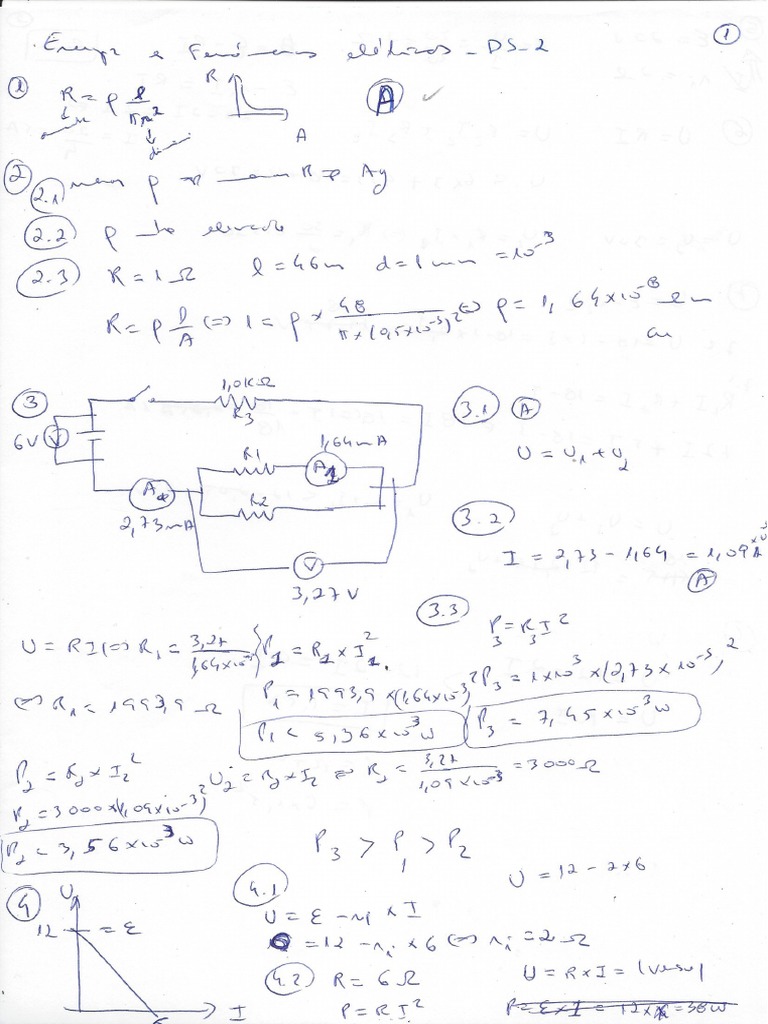 ①
Energia e Fenómenos elétricos - DS-2
① R = ρ l/πr² R A Ⓐ ✓
②
2.1 menor ρ ⇒ menor R ⇒ Ag
2.2 ρ elevado
2.3 R = 1 Ω l = 46 m d = 1 mm = 10⁻³
R = ρ l/A ⇔ 1 = ρ × 48/(π × (0,5×10⁻³)²) ⇔ ρ = 1,64×10⁻⁸ Ω m
③ 1,0KΩ R3
6V V
R1 1,64mA A1
R2
2,73mA
V
3,27 V
3.1 Ⓐ
U = U1 + U2
3.2
I = 2,73 - 1,64 = 1,09
Ⓐ
3.3 P3 = R3 I²
U = RI ⇔ R1 = 3,27/1,64×10⁻³
P1 = R1 × I1²
⇔ R1 = 1993,9 Ω
P1 = 1993,9 × (1,64×10⁻³)²
P3 = 1×10³ × (2,73×10⁻³)²
P1 = 5,36×10⁻³ W
P3 = 7,45×10⁻³ W
P2 = R2 × I2²
U2 = R2 × I2 ⇔ R2 = 3,27/1,09×10⁻³ = 3000 Ω
P2 = 3000×(1,09×10⁻³)²
P2 = 3,56×10⁻³ W
P3 > P1 > P2
④ U 12 = ε 6 I
4.1
U = 12 - 2×6
U = ε - ri × I
0 = 12 - ri × 6 ⇔ ri = 2 Ω
4.2 R = 6 Ω
U = R × I =
P = RI²
P = ε × I = 12 ×